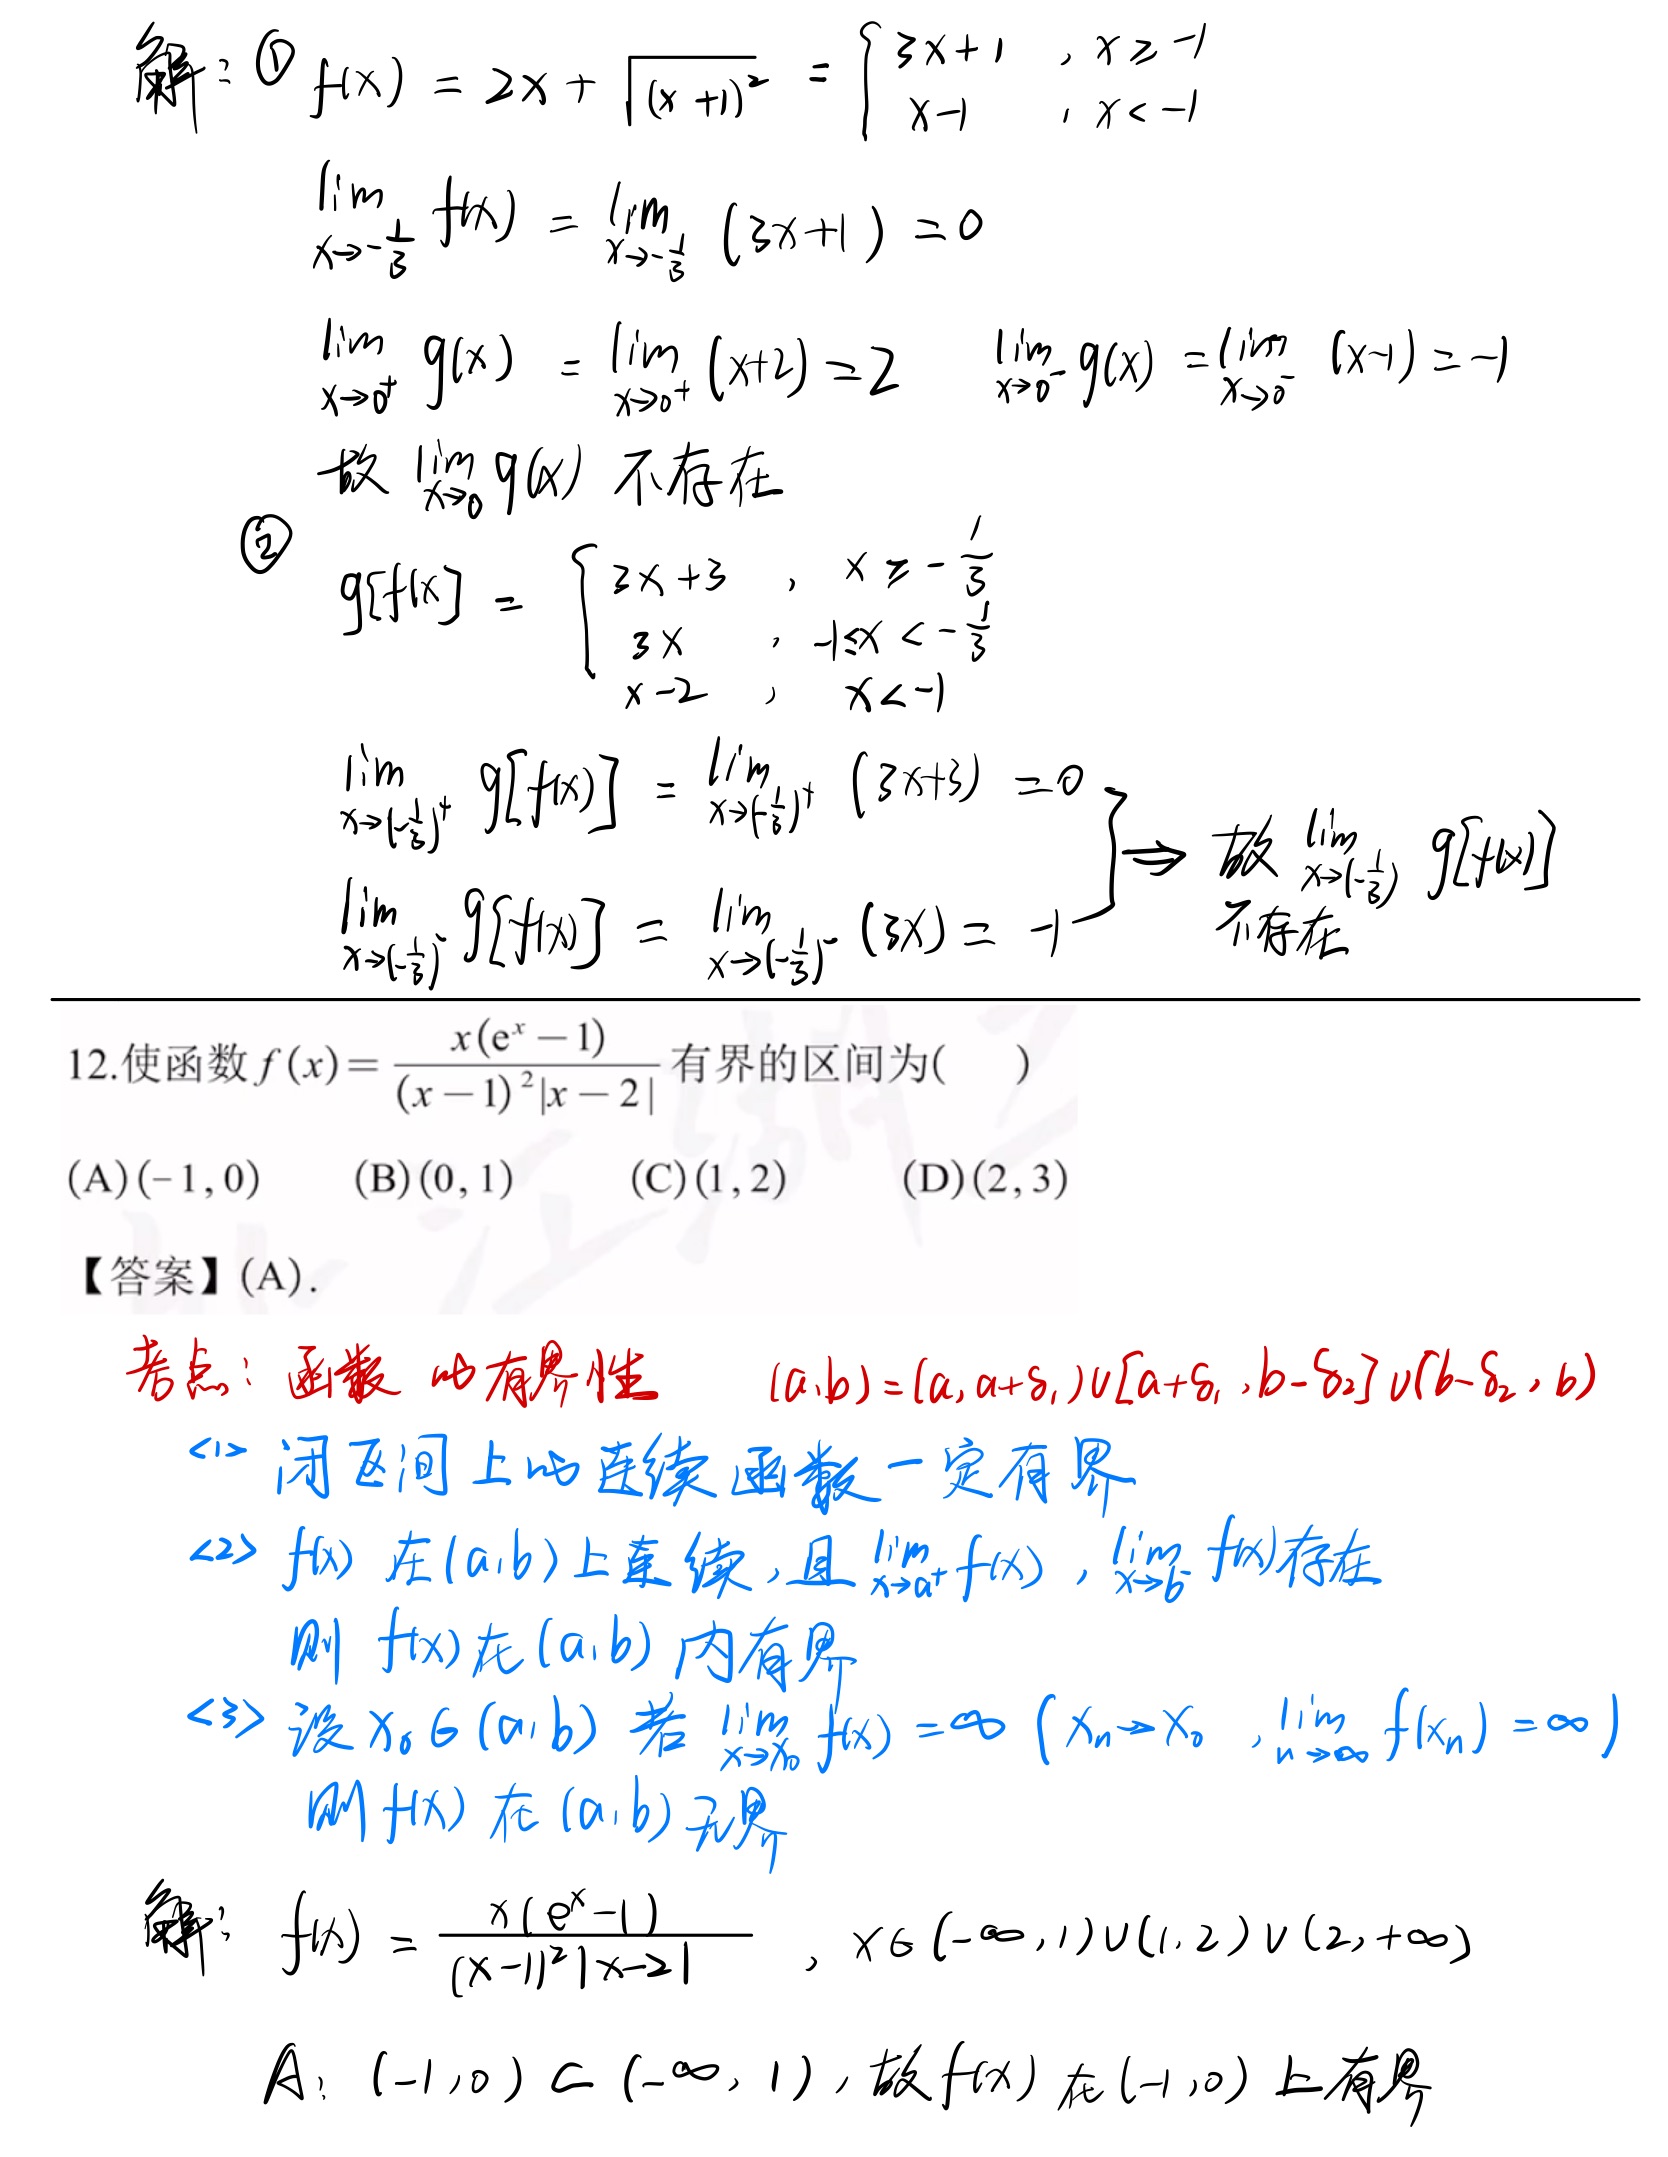 解：① f(x) = 2x + √(x+1)² = { 3x+1 , x ≥ -1
x-1 , x < -1
lim x→-1/3 f(x) = lim x→-1/3 (3x+1) = 0
lim x→0⁺ g(x) = lim x→0⁺ (x+2) = 2 lim x→0⁻ g(x) = lim x→0⁻ (x-1) = -1
故 lim x→0 g(x) 不存在
② g[f(x] = { 3x+3 , x ≥ -1/3
3x , -1≤x < -1/3
x-2 , x < -1
lim x→(-1/3)⁺ g[f(x)] = lim x→(-1/3)⁺ (3x+3) = 0
lim x→(-1/3)⁻ g[f(x)] = lim x→(-1/3)⁻ (3x) = -1
} ⇒ 故 lim x→(-1/3) g[f(x)]
不存在
12.使函数 f(x) = x(eˣ-1) / (x-1)²|x-2| 有界的区间为( )
(A)(-1,0) (B)(0,1) (C)(1,2) (D)(2,3)
【答案】(A).
考点：函数的有界性 (a,b)=(a,a+δ₁)∪[a+δ₁,b-δ₂]∪(b-δ₂,b)
<1> 闭区间上的连续函数一定有界
<2> f(x) 在(a,b)上连续,且 lim x→a⁺ f(x), lim x→b⁻ f(x)存在
则 f(x)在(a,b)内有界
<3> 设 x₀∈(a,b) 若 lim x→x₀ f(x) = ∞ (xₙ→x₀ , lim n→∞ f(xₙ) = ∞)
则 f(x) 在(a,b)无界
解： f(x) = x(eˣ-1) / (x-1)²|x-2| , x∈(-∞,1)∪(1,2)∪(2,+∞)
A: (-1,0) ⊂ (-∞,1), 故 f(x) 在(-1,0)上有界